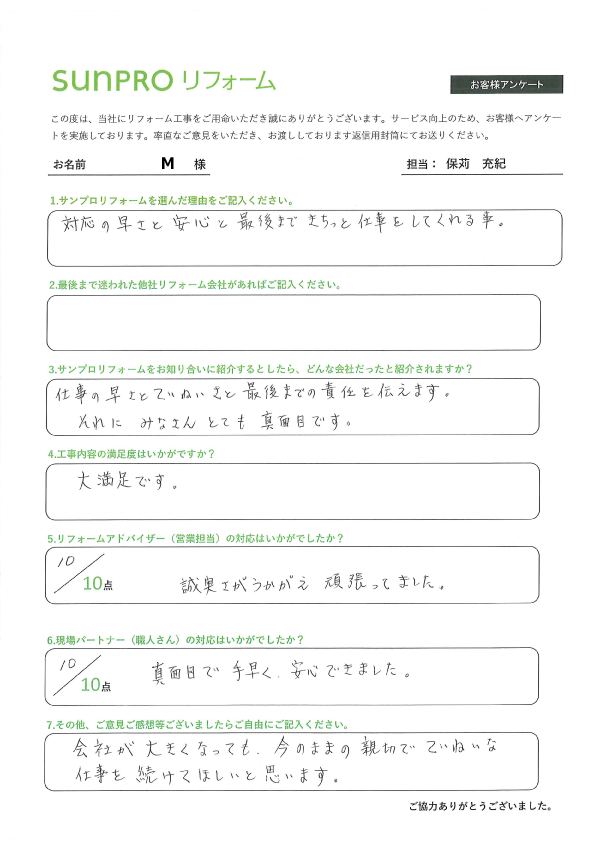 sunPRO リフォーム
お客様アンケート
この度は、当社にリフォーム工事をご用命いただき誠にありがとうございます。サービス向上のため、お客様へアンケー
トを実施しております。率直なご意見をいただき、お渡ししております返信用封筒にてお送りください。
お名前 M 様 担当： 保苅 充紀
1.サンプロリフォームを選んだ理由をご記入ください。
対応の早さと 安心と 最後まで きちっと 仕事を してくれる 事。
2.最後まで迷われた他社リフォーム会社があればご記入ください。
3.サンプロリフォームをお知り合いに紹介するとしたら、どんな会社だったと紹介されますか？
仕事の早さとていねいさと最後までの責任を伝えます。
それに みなさん とても 真面目です。
4.工事内容の満足度はいかがですか？
大満足です。
5.リフォームアドバイザー（営業担当）の対応はいかがでしたか？
10／10点 誠実さがうかがえ 頑張ってました。
6.現場パートナー（職人さん）の対応はいかがでしたか？
10／10点 真面目で 手早く、安心できました。
7.その他、ご意見ご感想等ございましたらご自由にご記入ください。
会社が 大きくなっても、今のままの 親切で ていねいな
仕事を 続けてほしいと 思います。
ご協力ありがとうございました。